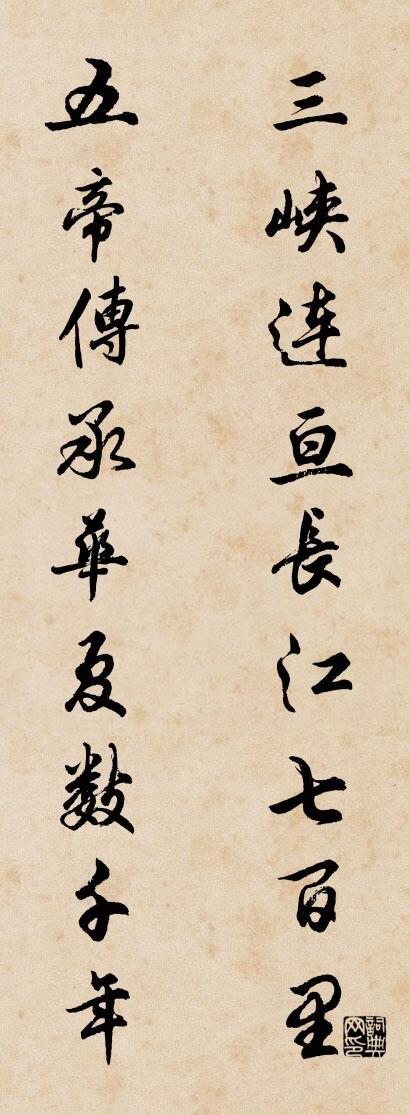 三峽連亘長江七百里
五帝傳承華夏數千年
詞典网印